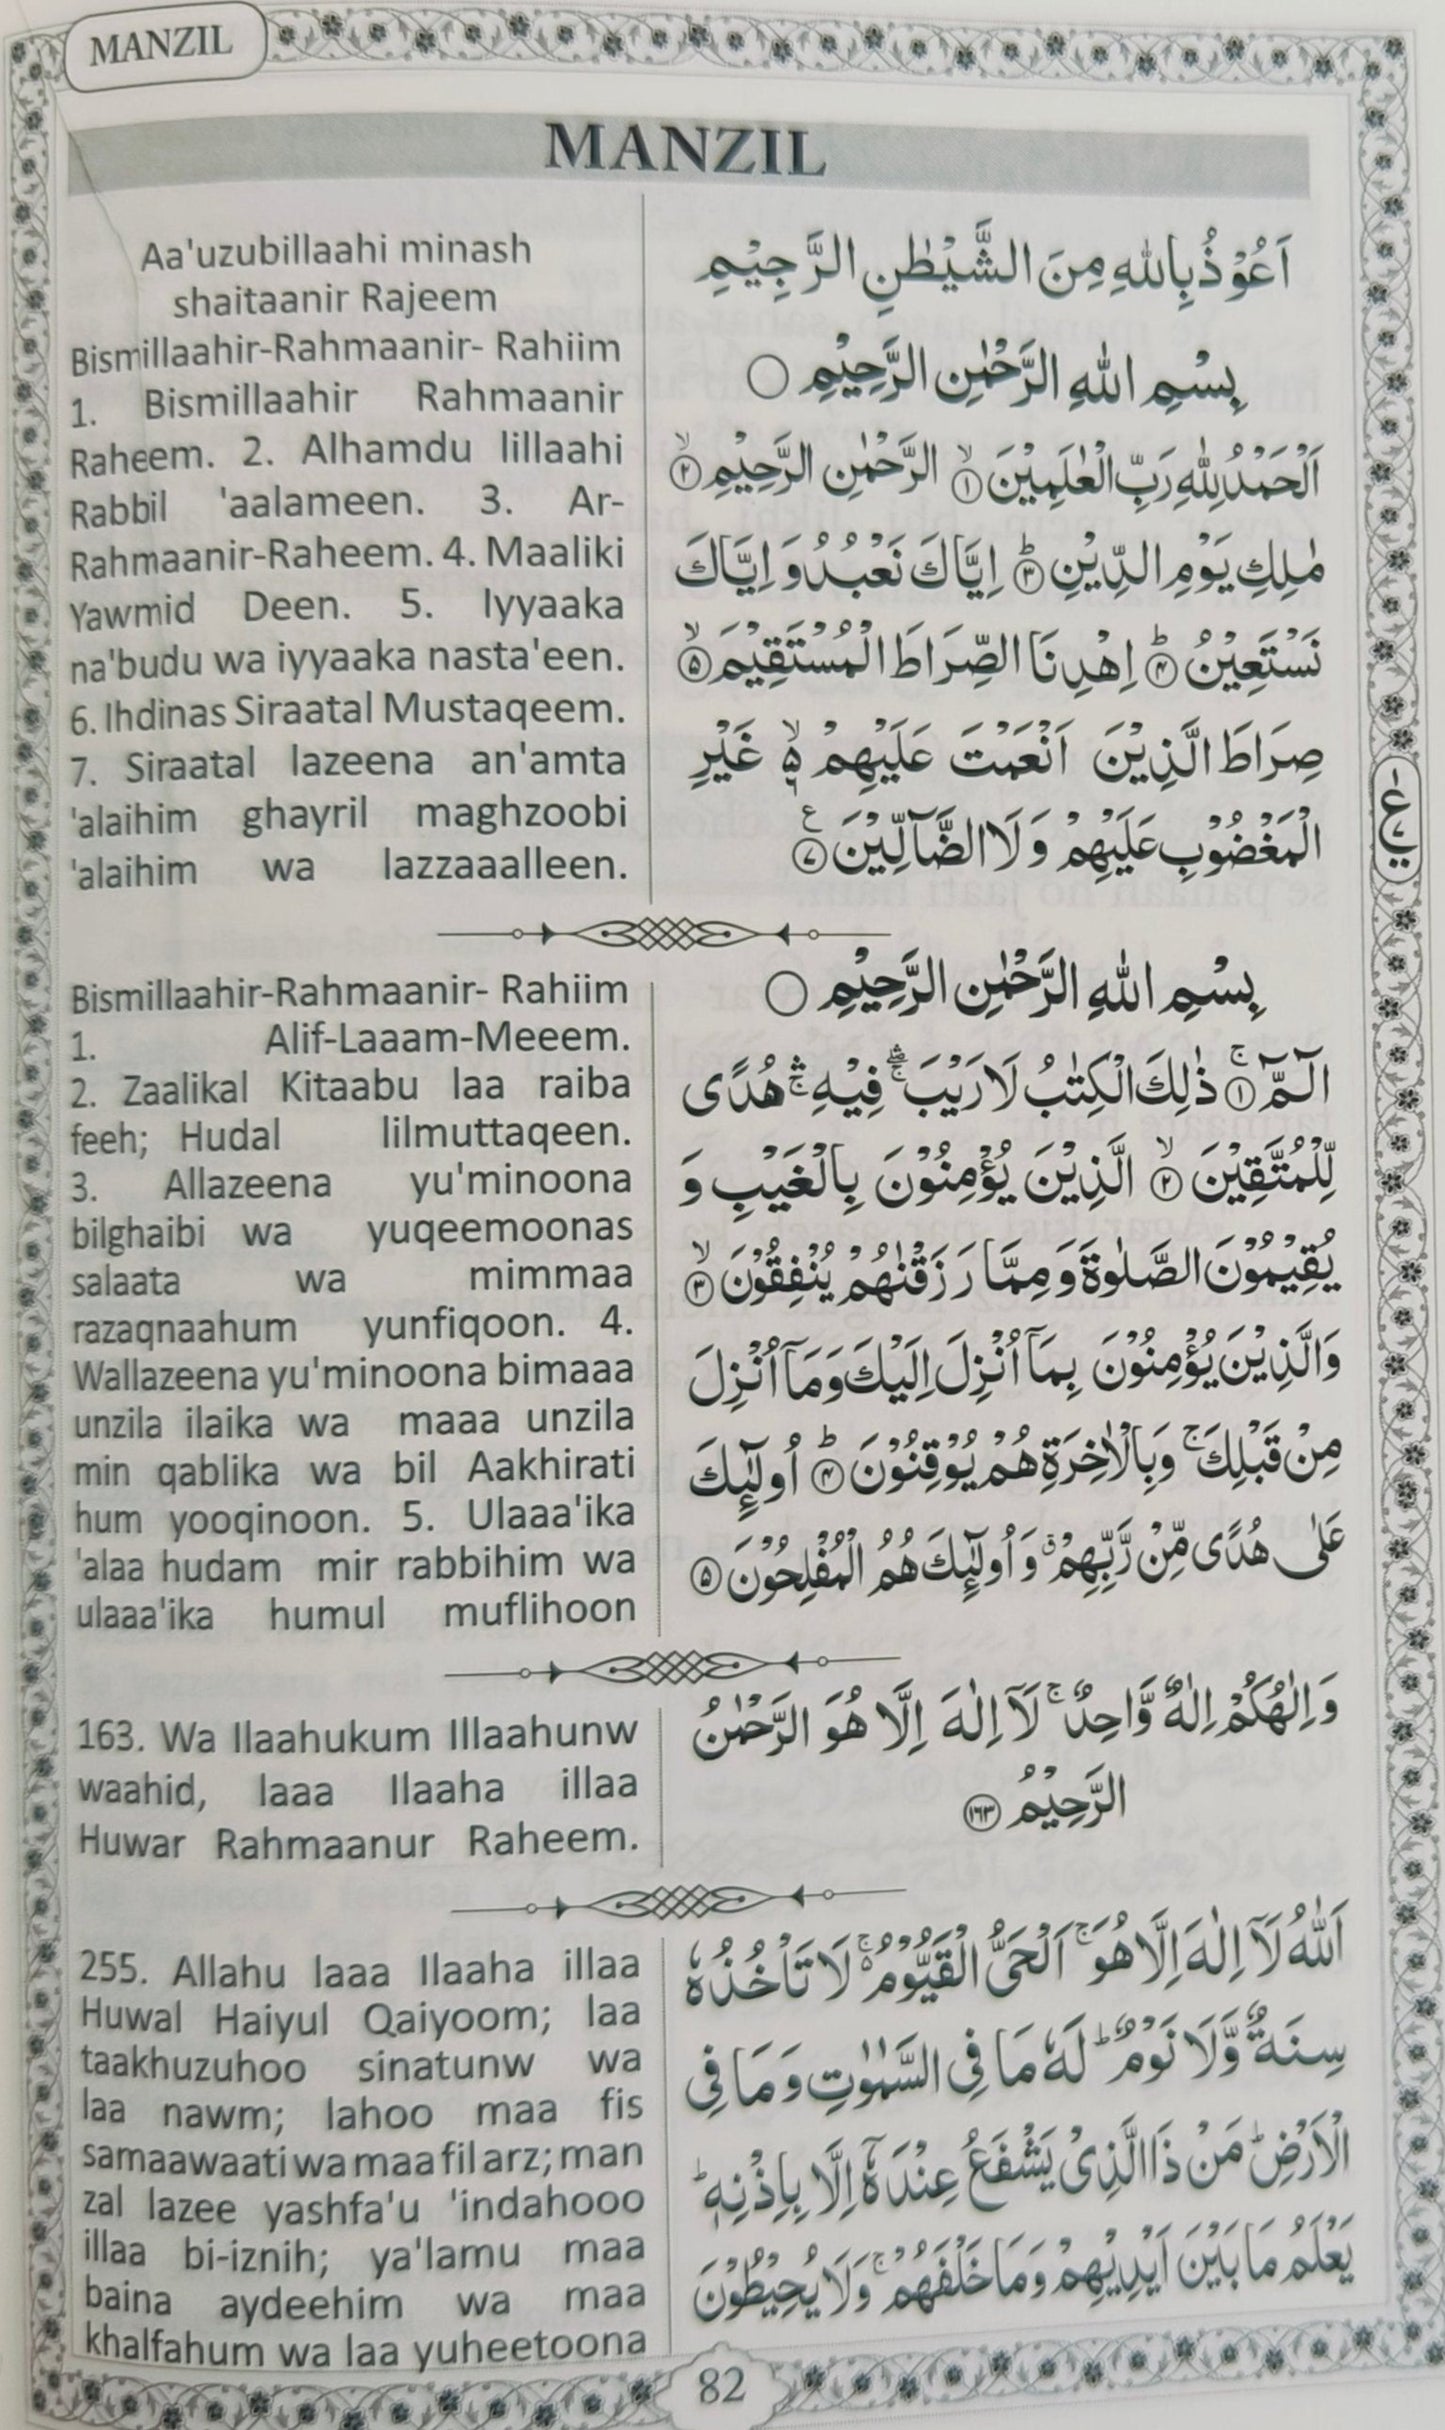 MANZIL
MANZIL
Aa'uzubillaahi minash
shaitaanir Rajeem
Bismillaahir-Rahmaanir- Rahiim
1. Bismillaahir Rahmaanir
Raheem. 2. Alhamdu lillaahi
Rabbil 'aalameen. 3. Ar-
Rahmaanir-Raheem. 4. Maaliki
Yawmid Deen. 5. Iyyaaka
na'budu wa iyyaaka nasta'een.
6. Ihdinas Siraatal Mustaqeem.
7. Siraatal lazeena an'amta
'alaihim ghayril maghzoobi
'alaihim wa lazzaaalleen.
اَعُوْذُ بِاللّٰهِ مِنَ الشَّيْطٰنِ الرَّجِيْمِ
بِسْمِ اللّٰهِ الرَّحْمٰنِ الرَّحِيْمِ ○
اَلْحَمْدُ لِلّٰهِ رَبِّ الْعٰلَمِيْنَ ۙ﴿۱﴾ الرَّحْمٰنِ الرَّحِيْمِ ۙ﴿۲﴾
مٰلِكِ يَوْمِ الدِّيْنِ ؕ﴿۳﴾ اِيَّاكَ نَعْبُدُ وَ اِيَّاكَ
نَسْتَعِيْنُ ؕ﴿۴﴾ اِهْدِنَا الصِّرَاطَ الْمُسْتَقِيْمَ ۙ﴿۵﴾
صِرَاطَ الَّذِيْنَ اَنْعَمْتَ عَلَيْهِمْ ۙ۬ۦ غَيْرِ
الْمَغْضُوْبِ عَلَيْهِمْ وَ لَا الضَّآلِّيْنَ ﴿۷﴾ ع
Bismillaahir-Rahmaanir- Rahiim
1. Alif-Laaam-Meeem.
2. Zaalikal Kitaabu laa raiba
feeh; Hudal lilmuttaqeen.
3. Allazeena yu'minoona
bilghaibi wa yuqeemoonas
salaata wa mimmaa
razaqnaahum yunfiqoon. 4.
Wallazeena yu'minoona bimaaa
unzila ilaika wa maaa unzila
min qablika wa bil Aakhirati
hum yooqinoon. 5. Ulaaa'ika
'alaa hudam mir rabbihim wa
ulaaa'ika humul muflihoon
بِسْمِ اللّٰهِ الرَّحْمٰنِ الرَّحِيْمِ ○
الٓمّٓ ۚ﴿۱﴾ ذٰلِكَ الْكِتٰبُ لَا رَيْبَ ۛۖۚ فِيْهِ ۛۚ هُدًى
لِّلْمُتَّقِيْنَ ۙ﴿۲﴾ الَّذِيْنَ يُؤْمِنُوْنَ بِالْغَيْبِ وَ
يُقِيْمُوْنَ الصَّلٰوةَ وَ مِمَّا رَزَقْنٰهُمْ يُنْفِقُوْنَ ۙ﴿۳﴾
وَالَّذِيْنَ يُؤْمِنُوْنَ بِمَاۤ اُنْزِلَ اِلَيْكَ وَمَاۤ اُنْزِلَ
مِنْ قَبْلِكَ ۚ وَبِالْاٰخِرَةِ هُمْ يُوْقِنُوْنَ ؕ﴿۴﴾ اُولٰٓئِكَ
عَلٰى هُدًى مِّنْ رَّبِّهِمْ ۗ وَ اُولٰٓئِكَ هُمُ الْمُفْلِحُوْنَ ﴿۵﴾
163. Wa Ilaahukum Illaahunw
waahid, laaa Ilaaha illaa
Huwar Rahmaanur Raheem.
وَ اِلٰهُكُمْ اِلٰهٌ وَّاحِدٌ ۚ لَاۤ اِلٰهَ اِلَّا هُوَ الرَّحْمٰنُ
الرَّحِيْمُ ﴿۱۶۳﴾
255. Allahu laaa Ilaaha illaa
Huwal Haiyul Qaiyoom; laa
taakhuzuhoo sinatunw wa
laa nawm; lahoo maa fis
samaawaati wa maa fil arz; man
zal lazee yashfa'u 'indahooo
illaa bi-iznih; ya'lamu maa
baina aydeehim wa maa
khalfahum wa laa yuheetoona
اَللّٰهُ لَاۤ اِلٰهَ اِلَّا هُوَ ۚ اَلْحَيُّ الْقَيُّوْمُ ۬ۚ لَا تَاْخُذُهٗ
سِنَةٌ وَّلَا نَوْمٌ ؕ لَهٗ مَا فِى السَّمٰوٰتِ وَ مَا فِى
الْاَرْضِ ؕ مَنْ ذَا الَّذِىْ يَشْفَعُ عِنْدَهٗۤ اِلَّا بِاِذْنِهٖ ؕ
يَعْلَمُ مَا بَيْنَ اَيْدِيْهِمْ وَ مَا خَلْفَهُمْ ۚ وَلَا يُحِيْطُوْنَ
82